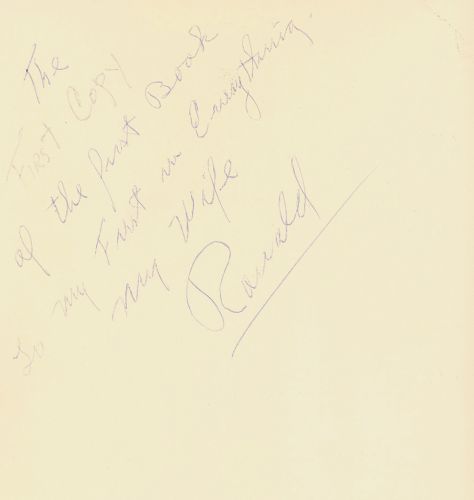 The
First Copy
of the first Book
To my First in Everything.
my Wife
Ronald